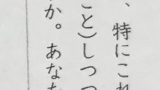 、特にこれ
こと）しつつ
か。あなた